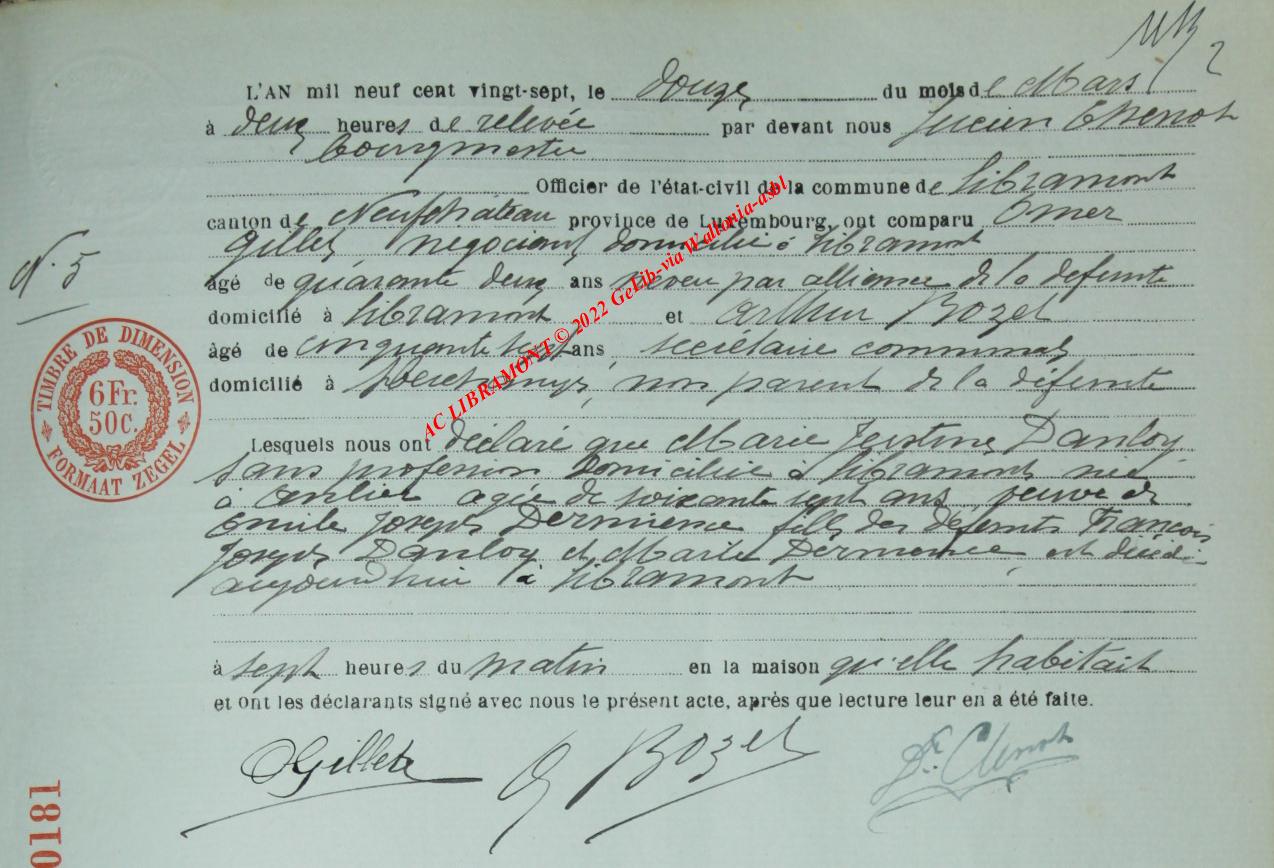 L'AN mil neuf cent vingt-sept, le douze du mois de Mars
à deux heures de relevée par devant nous Lucien
bourgmestre
Officier de l'état-civil de la commune de Libramont
canton de Neufchâteau province de Luxembourg, ont comparu Omer
Gillet négociant domicilié à Libramont
N. 5
âgé de quarante deux ans neveu par alliance de la défunte
domicilié à Libramont et Arthur Bozet
âgé de cinquante sept ans, secrétaire communal
domicilié à non parent de la défunte
TIMBRE DE DIMENSION
6 Fr.
50 C.
FORMAAT ZEGEL
Lesquels nous ont déclaré que Marie Justine Danloy
sans profession domiciliée à Libramont née
à Anlier agée de soixante sept ans veuve de
Emile Joseph Dermience fille des défunts François
Joseph Danloy et Marie Dermience, est décédée
aujourd'hui à Libramont
à sept heures du matin en la maison qu'elle habitait
et ont les déclarants signé avec nous le présent acte, après que lecture leur en a été faite.
OGillet A Bozet Dr.
0181
AC LIBRAMONT © 2022 GeLib-via Wallonia-asbl